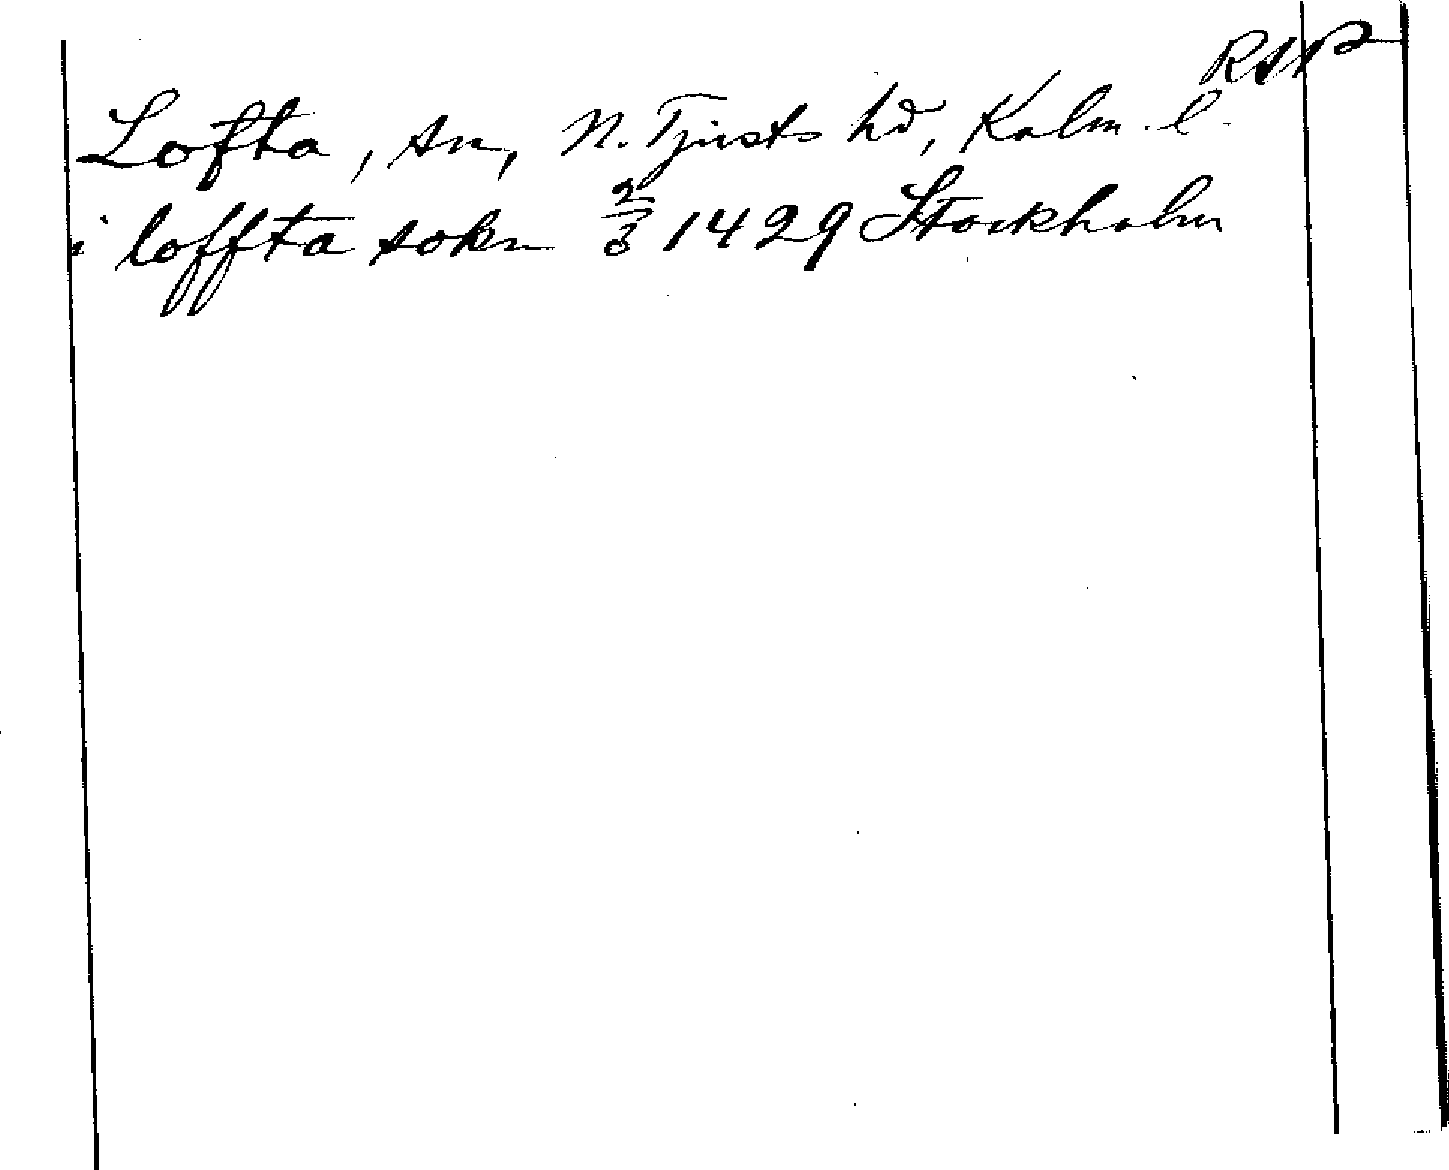 RAP
Lofta, sn, N. Tjusts hd, Kalm. l.
i loffta sokn 2/3 1429 Stockholm